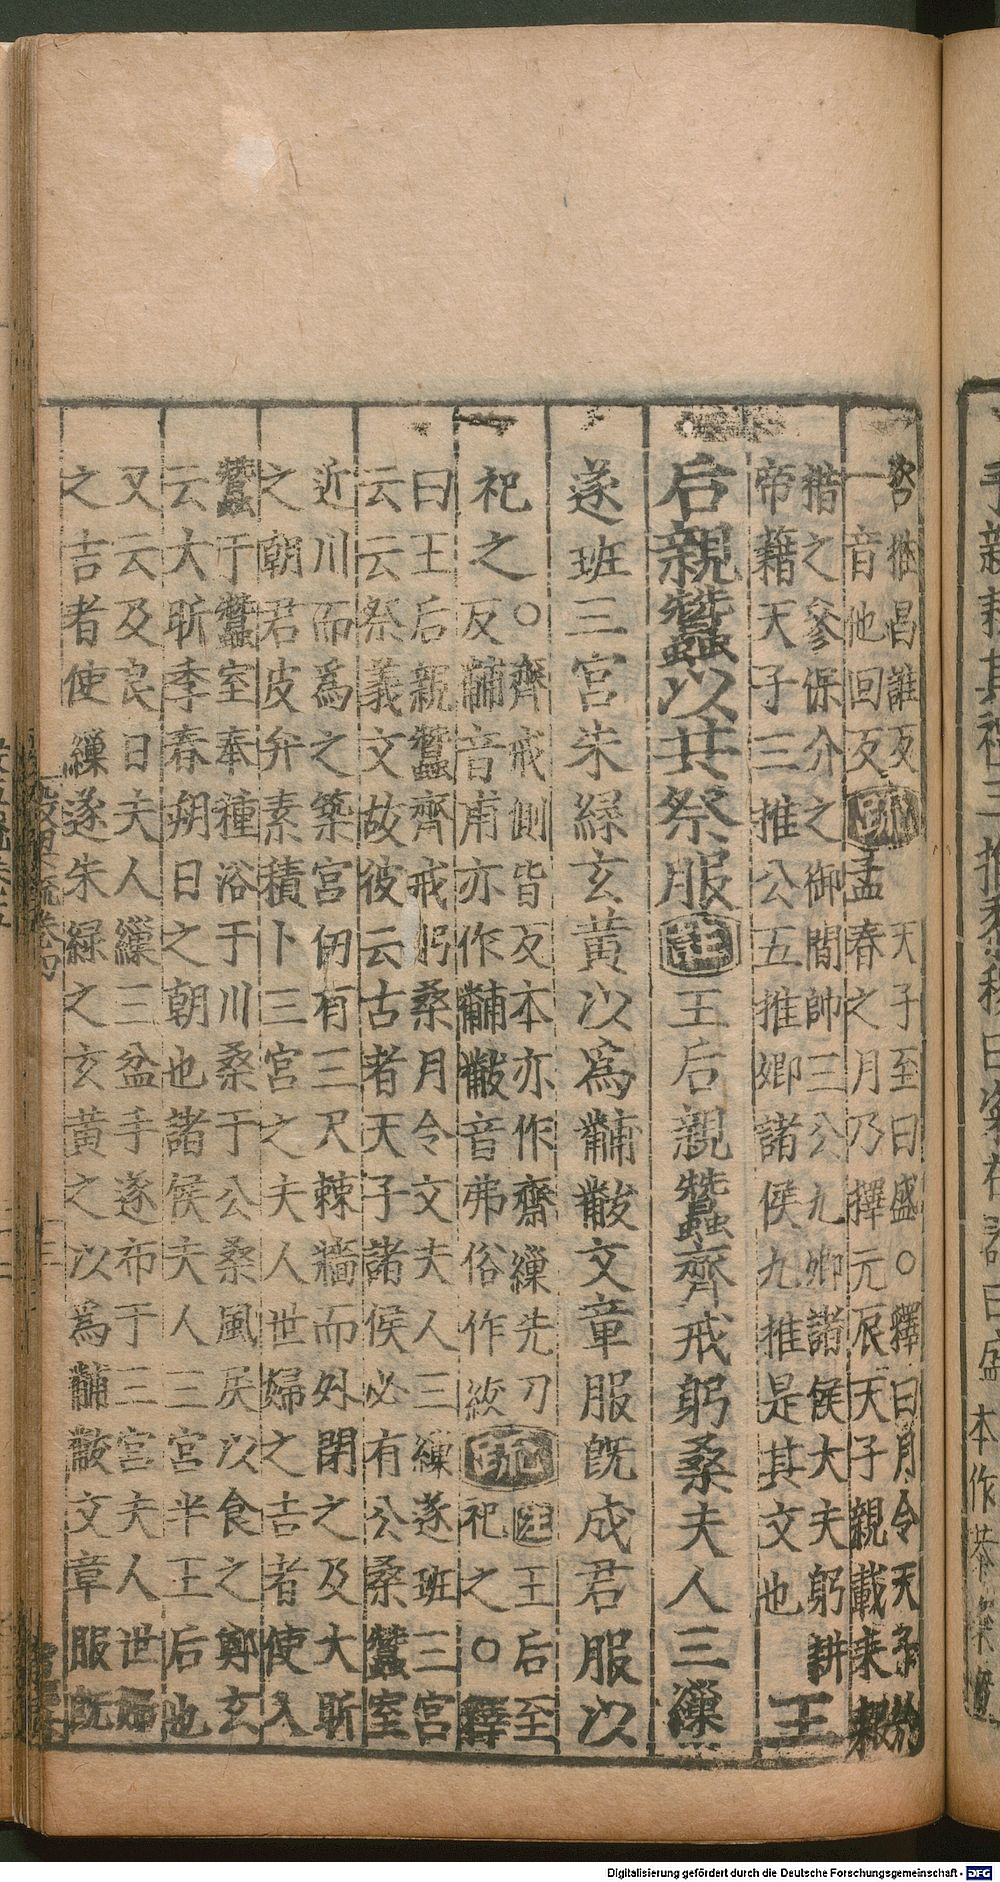 咨推昌誰反
一音他回反
疏
天子至曰盛○釋曰月令天子於
孟春之月乃擇元辰天子親載耒耜
措之參保介之御間帥三公九卿諸侯大夫躬耕
帝藉天子三推公五推卿諸侯九推是其文也
王
后親蠶以其祭服註王后親蠶齊戒躬桑夫人三繅
遂班三宮朱綠玄黃以爲黼黻文章服旣成君服以
祀之
○齊戒側皆反本亦作齋繅先刀
反黼音甫亦作黼黻音弗俗作紱
疏
註王后至
祀之○釋
曰王后親蠶齊戒躬桑月令文夫人三繅遂班三宮
云云祭義文故彼云古者天子諸侯必有公桑蠶室
近川而爲之築宮仞有三尺棘牆而外閉之及大昕
之朝君皮弁素積卜三宮之夫人世婦之吉者使入
蠶于蠶室奉種浴于川桑于公桑風戾以食之鄭玄
云大昕季春朔日之朝也諸侯夫人三宮半王后也
又云及良日夫人繅三盆手遂布于三宮夫人世婦
之吉者使繅遂朱綠之玄黃之以爲黼黻文章服旣
Digitalisierung gefördert durch die Deutsche Forschungsgemeinschaft - DFG